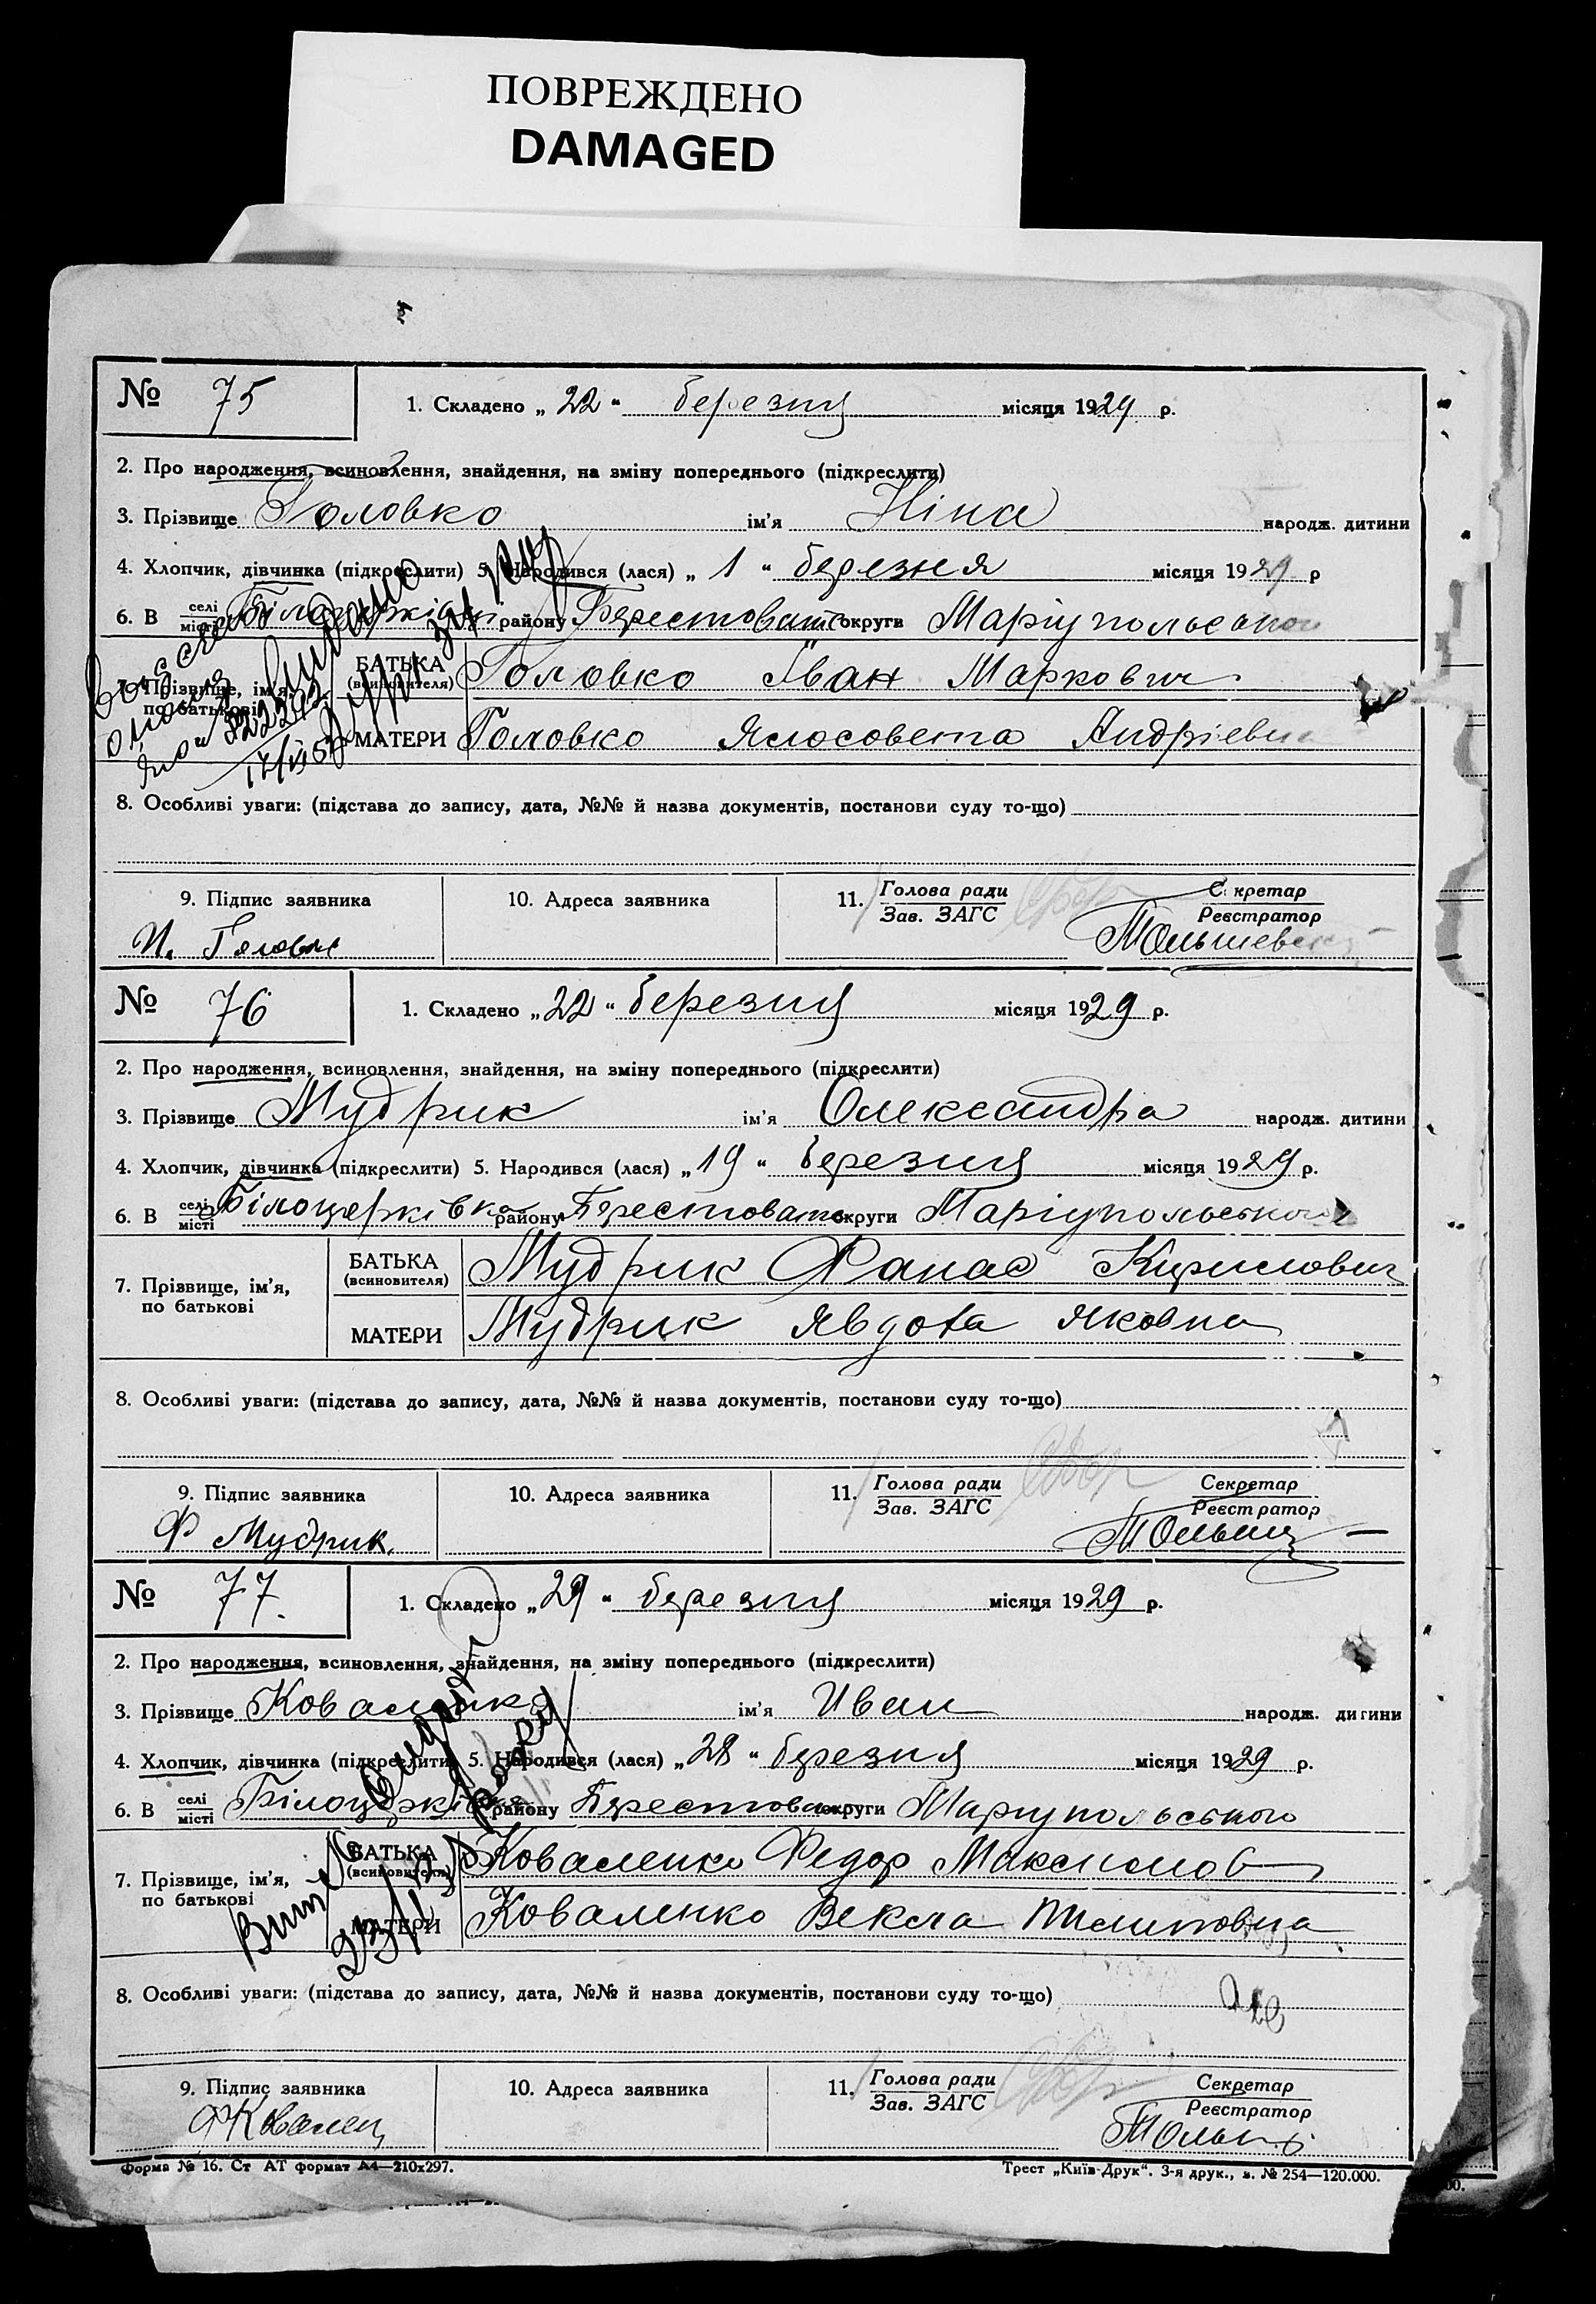 ПОВРЕЖДЕНО
DAMAGED
№ 75
1. Складено „ 22 “ березня місяця 1929 р.
2. Про народження, всиновлення, знайдення, на зміну попереднього (підкреслити)
3. Прізвище Головко ім'я Ніна народж. дитини
4. Хлопчик, дівчинка (підкреслити) 5. Народився (лася) „ 1 “ березня місяця 1929 р
6. В селі місті Білоцерківці району Берестоват округи Маріупольської
7. Прізвище, ім'я, по батькові
БАТЬКА (всиновителя) Головко Іван Маркович
МАТЕРИ Головко Ялосовета Андріевна
8. Особливі уваги: (підстава до запису, дата, №№ й назва документів, постанови суду то-що)
9. Підпис заявника 10. Адреса заявника 11. Голова ради Зав. ЗАГС Секретар Реєстратор
И. Головко
№ 76
1. Складено „ 22 “ березня місяця 1929 р.
2. Про народження, всиновлення, знайдення, на зміну попереднього (підкреслити)
3. Прізвище Мудрик ім'я Олександра народж. дитини
4. Хлопчик, дівчинка (підкреслити) 5. Народився (лася) „ 19 “ березня місяця 1929 р.
6. В селі місті Білоцерківка району Берестовать округи Маріупольського
7. Прізвище, ім'я, по батькові
БАТЬКА (всиновителя) Мудрик Фанас Кирилович
МАТЕРИ Мудрик Явдота Яковна
8. Особливі уваги: (підстава до запису, дата, №№ й назва документів, постанови суду то-що)
9. Підпис заявника 10. Адреса заявника 11. Голова ради Зав. ЗАГС Секретар Реєстратор
Ф Мудрик.
№ 77.
1. Складено „ 29 “ березня місяця 1929 р.
2. Про народження, всиновлення, знайдення, на зміну попереднього (підкреслити)
3. Прізвище Коваленко ім'я Иван народж. дитини
4. Хлопчик, дівчинка (підкреслити) 5. Народився (лася) „ 28 “ березня місяця 1929 р.
6. В селі місті Білоцерківка району Берестов округи Маріупольського
7. Прізвище, ім'я, по батькові
БАТЬКА (всиновителя) Коваленко Федор Максимов
МАТЕРИ Коваленко Векла Пилиповна
8. Особливі уваги: (підстава до запису, дата, №№ й назва документів, постанови суду то-що)
9. Підпис заявника 10. Адреса заявника 11. Голова ради Зав. ЗАГС Секретар Реєстратор
Форма № 16. Ст АТ формат А4—210х297.
Трест „Київ-Друк“. 3-я друк., з. № 254—120.000.